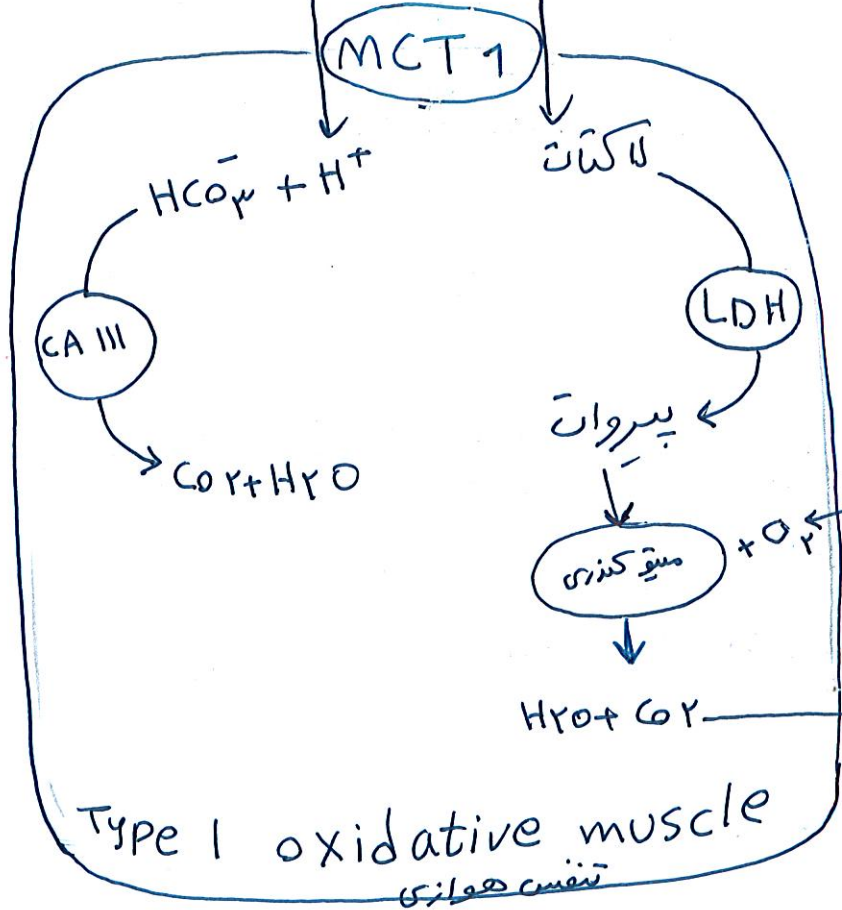 MCT 1
HCO₃⁻ + H⁺
لاکتات
CA III
LDH
پیروات
CO۲+H۲O
میتوکندری
+ O۲
H۲O+CO۲
Type I oxidative muscle
تنفس هوازی